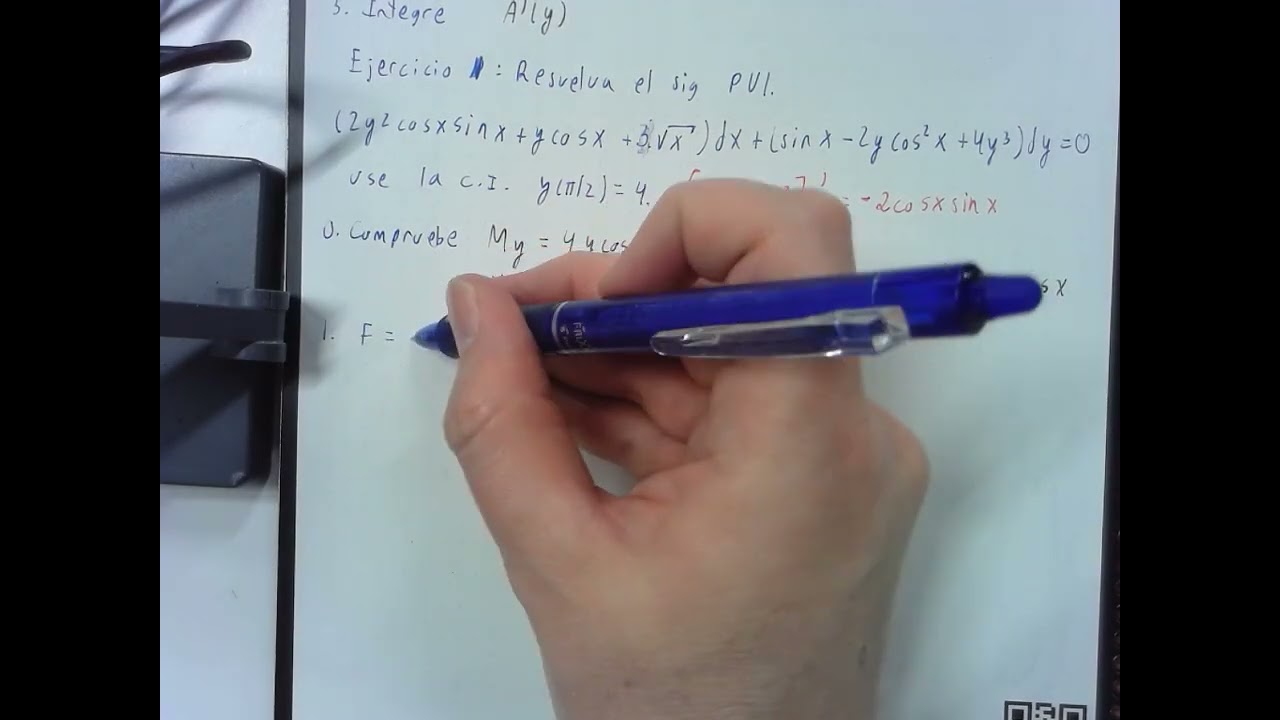 3. Integre A'(y)
Ejercicio 1: Resuelva el sig PVI.
(2y² cosx sinx + y cosx + 3√x) dx + (sinx - 2y cos²x + 4y³) dy = 0
use la c.I. y(π/2) = 4.
= -2cosx sinx
0. Compruebe My = 4y cos
sx
1. F =